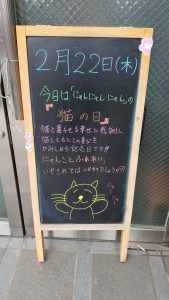 2月22日(木)
今日は「にゃんにゃんにゃん」の
『猫の日』
猫と暮らせる幸せに感謝し、
猫とともにこの喜びを
かみしめる記念日です!!
にゃんことふれあい、
いやされてはいかがでしょうか?